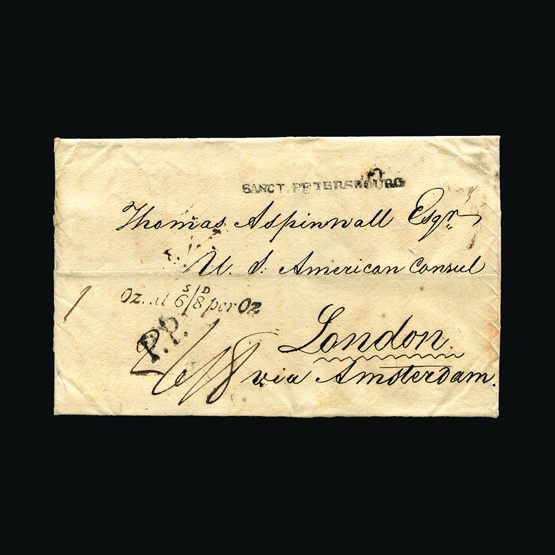 SANCT PETERSBOURG
Thomas Aspinwall Esqr
U. S. American Consul
Oz. at 6S/8D per Oz
London.
P.P.
via Amsterdam.